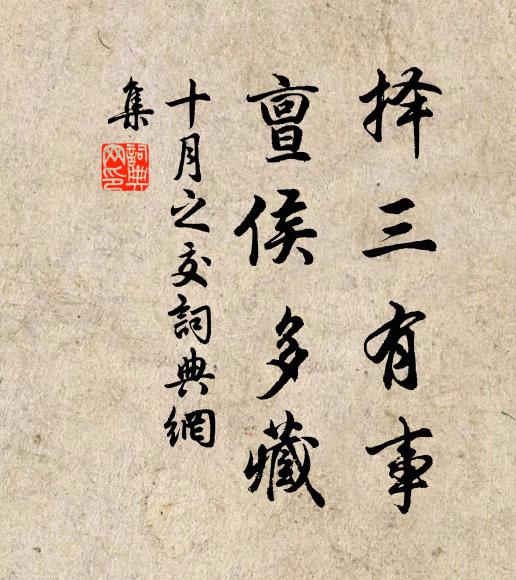 择三有事
亶侯多藏
十月之交詞典網
集
詞典網印